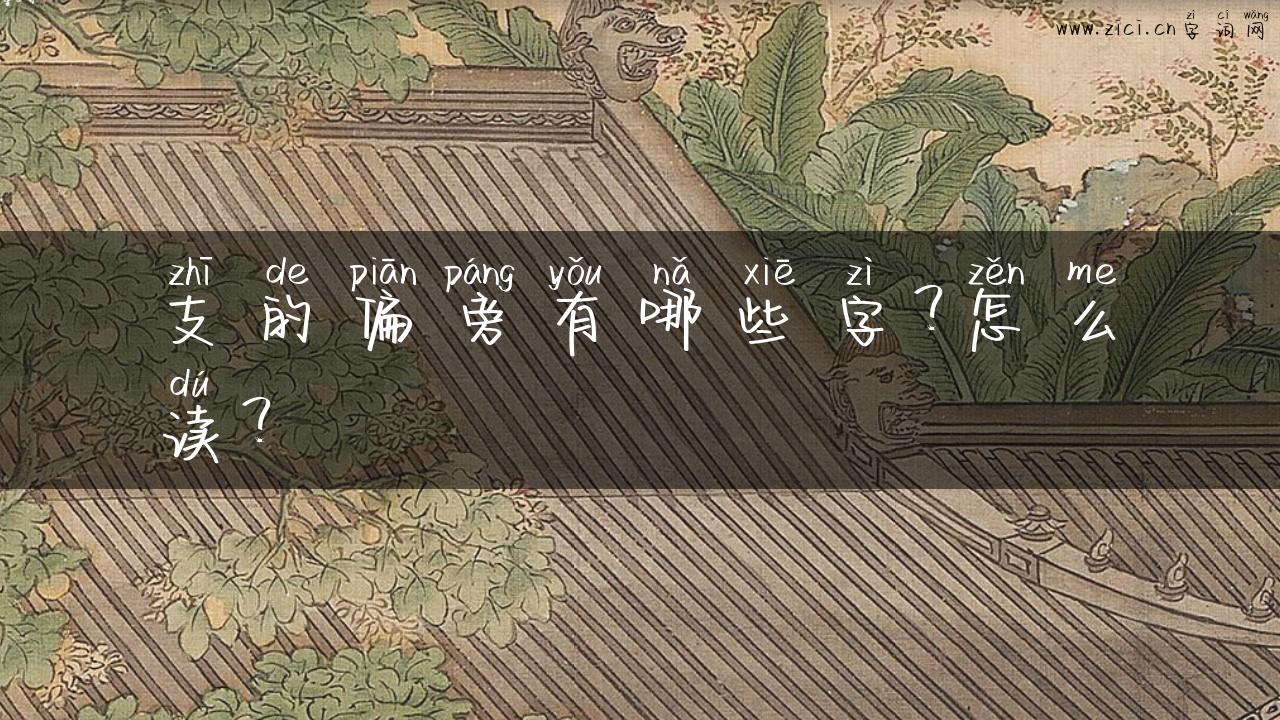 zì cí wǎng
www.zici.cn 字词网
zhī de piān páng yǒu nǎ xiē zì zěn me
支的偏旁有哪些字?怎么
dú
读?